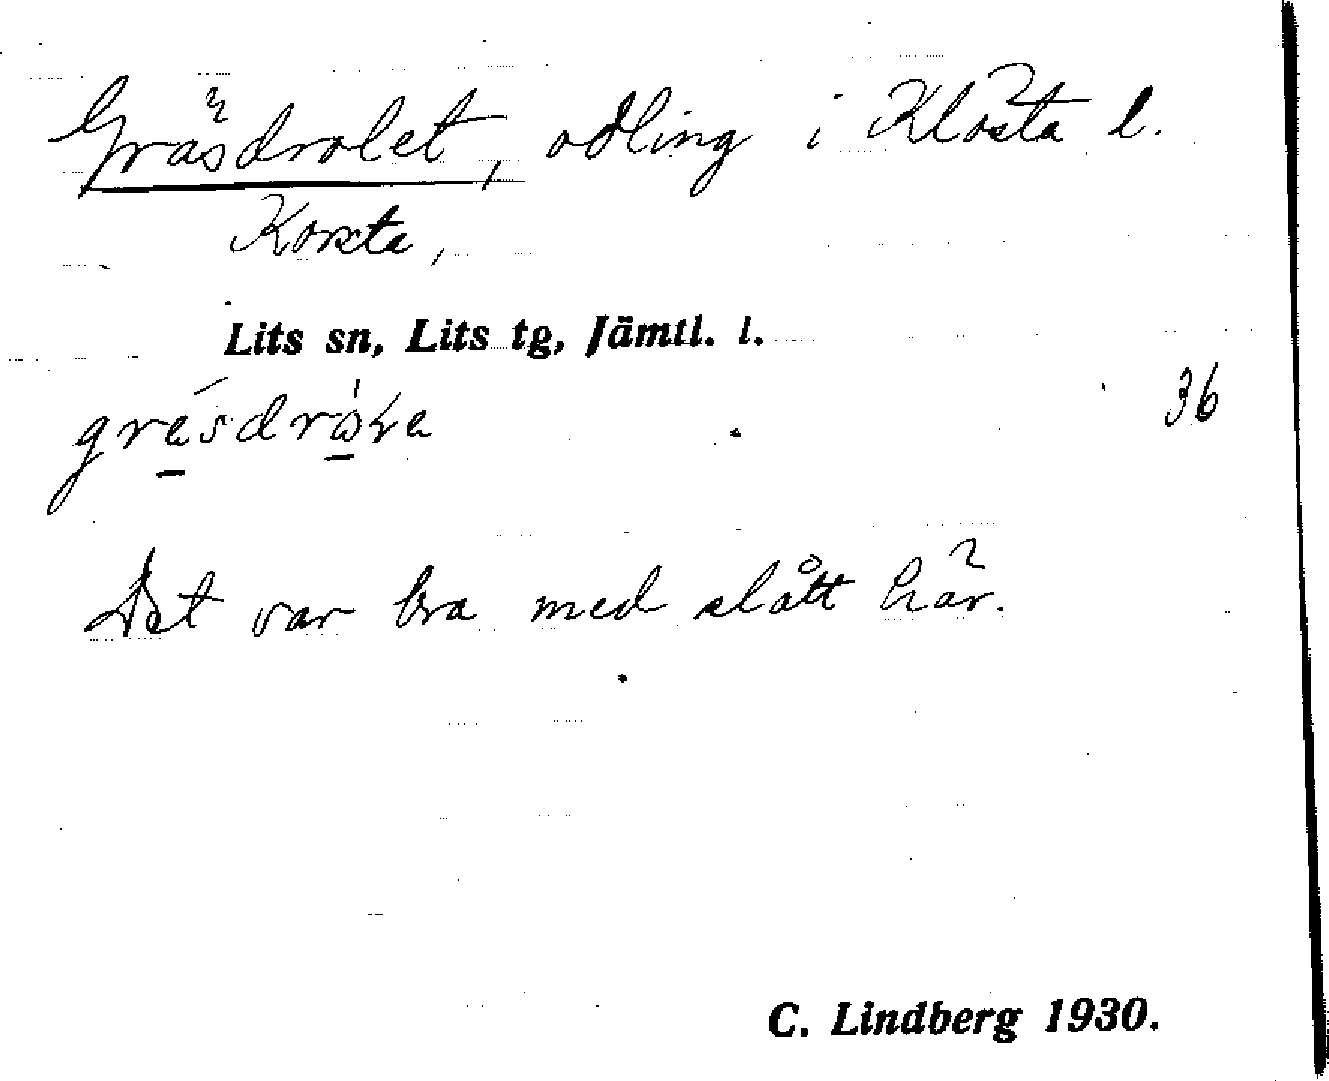 Gräsdrolet, odling i Klösta l.
Korsta,
Lits sn, Lits tg, Jämtl. l.
36
Det var bra med slått här.
C. Lindberg 1930.